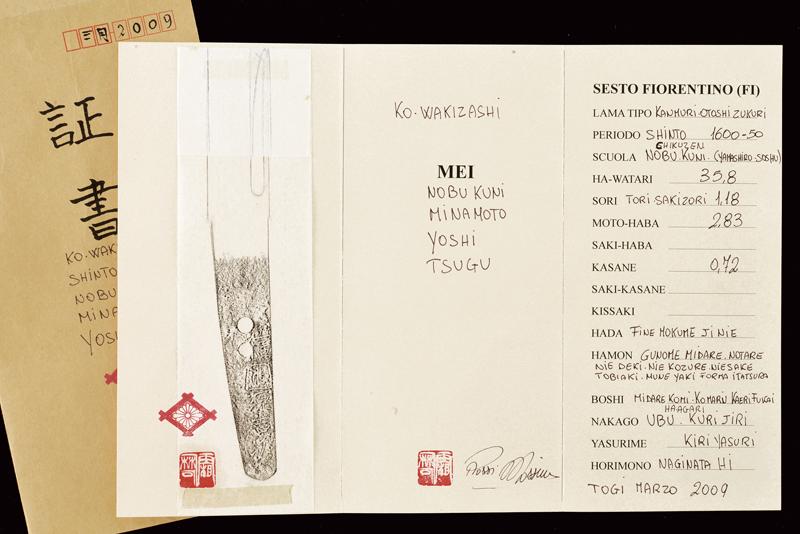 三月2009
証
書
KO-WAK
SHINTO
NOBU
MINA
YOSH
KO-WAKIZASHI
MEI
NOBU KUNI
MINAMOTO
YOSHI
TSUGU
SESTO FIORENTINO (FI)
LAMA TIPO KANMURI-OTOSHI ZUKURI
PERIODO SHINTO 1600-50
CHIKUZEN
SCUOLA NOBU KUNI. (YAMASHIRO-SOSHU)
HA-WATARI 35,8
SORI TORI SAKIZORI 1,18
MOTO-HABA 2,83
SAKI-HABA
KASANE 0,72
SAKI-KASANE
KISSAKI
HADA FINE MOKUME JI NIE
HAMON GUNOME. MIDARE. NOTARE
NIE DEKI. NIE KOZURE. NIESAKE
TOBIAKI. MUNE YAKI FORMA ITATSURA
BOSHI MIDARE KOMI. KOMARU KAERI FUKAI
HAAGARI
NAKAGO UBU. KURI JIRI
YASURIME KIRI YASURI
HORIMONO NAGINATA HI
TOGI MARZO 2009